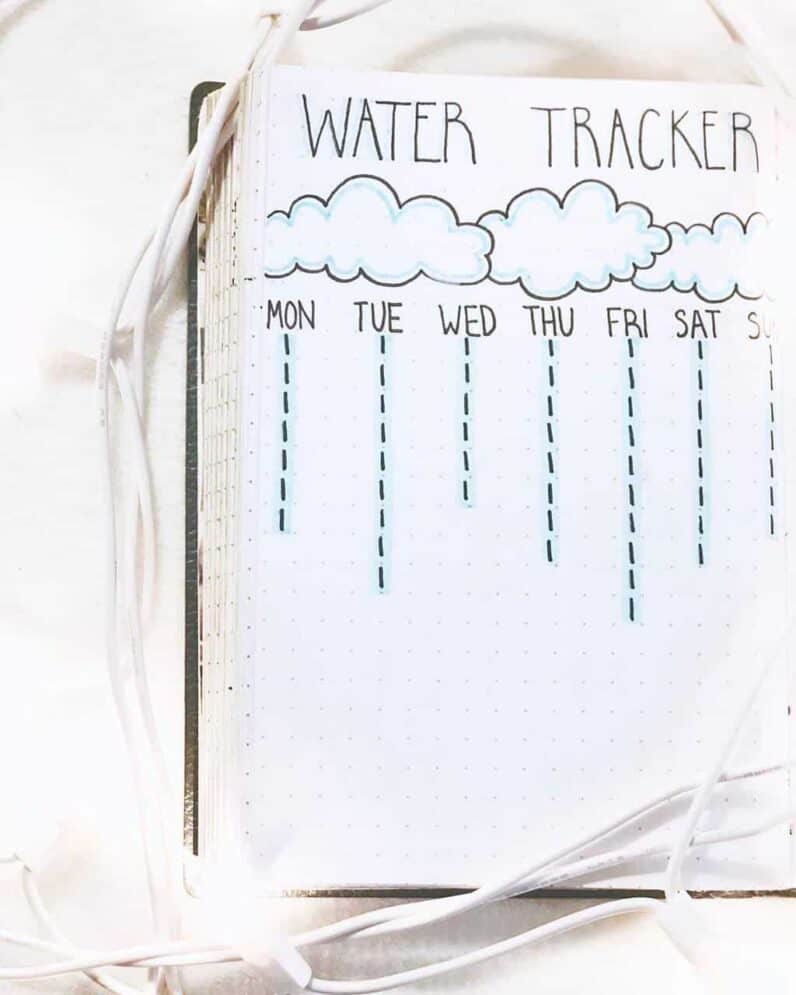 WATER TRACKER
MON TUE WED THU FRI SAT